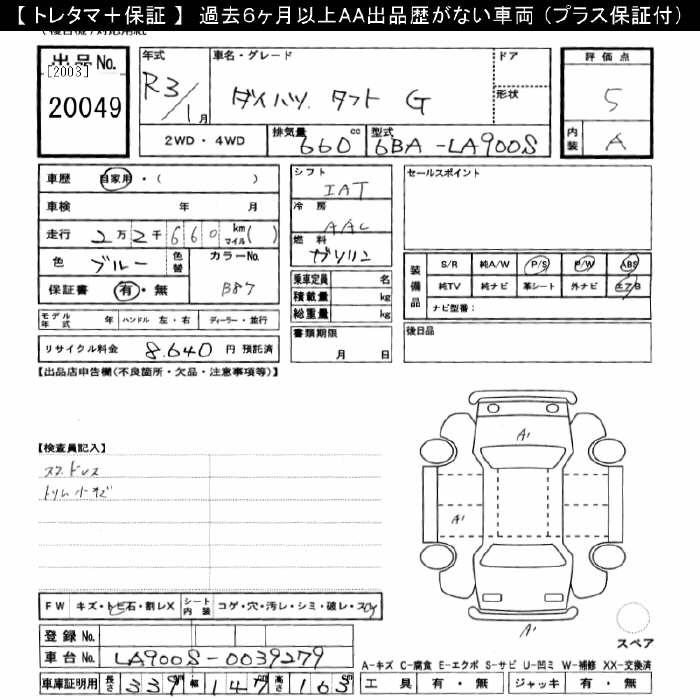 【 トレタマ＋保証 】 過去６ヶ月以上ＡＡ出品歴がない車両（プラス保証付）
出品 No.
[2003]
20049
年式
R3/1月
車名・グレード
ダイハツ タフト G
ドア
形状
評価点
5
内装
A
2WD・4WD
排気量
660 cc
型式
6BA-LA900S
車歴 自家用・( )
車検 年 月
走行 2万2千660 km マイル( )
色 ブルー 色替
カラーNo.
B87
保証書 有・無
モデル年式 年 ハンドル 左・右 ディーラー・並行
リサイクル料金 8,640 円 預託済
シフト
IAT
冷房
AAC
燃料
ガソリン
乗車定員 名
積載量 kg
総重量 kg
書類期限
月 日
セールスポイント
装備品
S/R 純A/W P/S P/W ABS
純TV 純ナビ 革シート 外ナビ エアB
ナビ型番：
後日品
【出品店申告欄(不良箇所・欠品・注意事項等)】
【検査員記入】
スクドレス
トリム小キズ
A1
A1
A1
FW キズ・トビ石・割レX シート内装 コゲ・穴・汚レ・シミ・破レ・スレ
登録 No.
車台 No. LA900S-0039279
車庫証明用 長さ 339 幅 147 高さ 163
スペア
A-キズ C-腐食 E-エクボ S-サビ U-凹ミ W-補修 XX-交換済
工具 有・無 ジャッキ 有・無